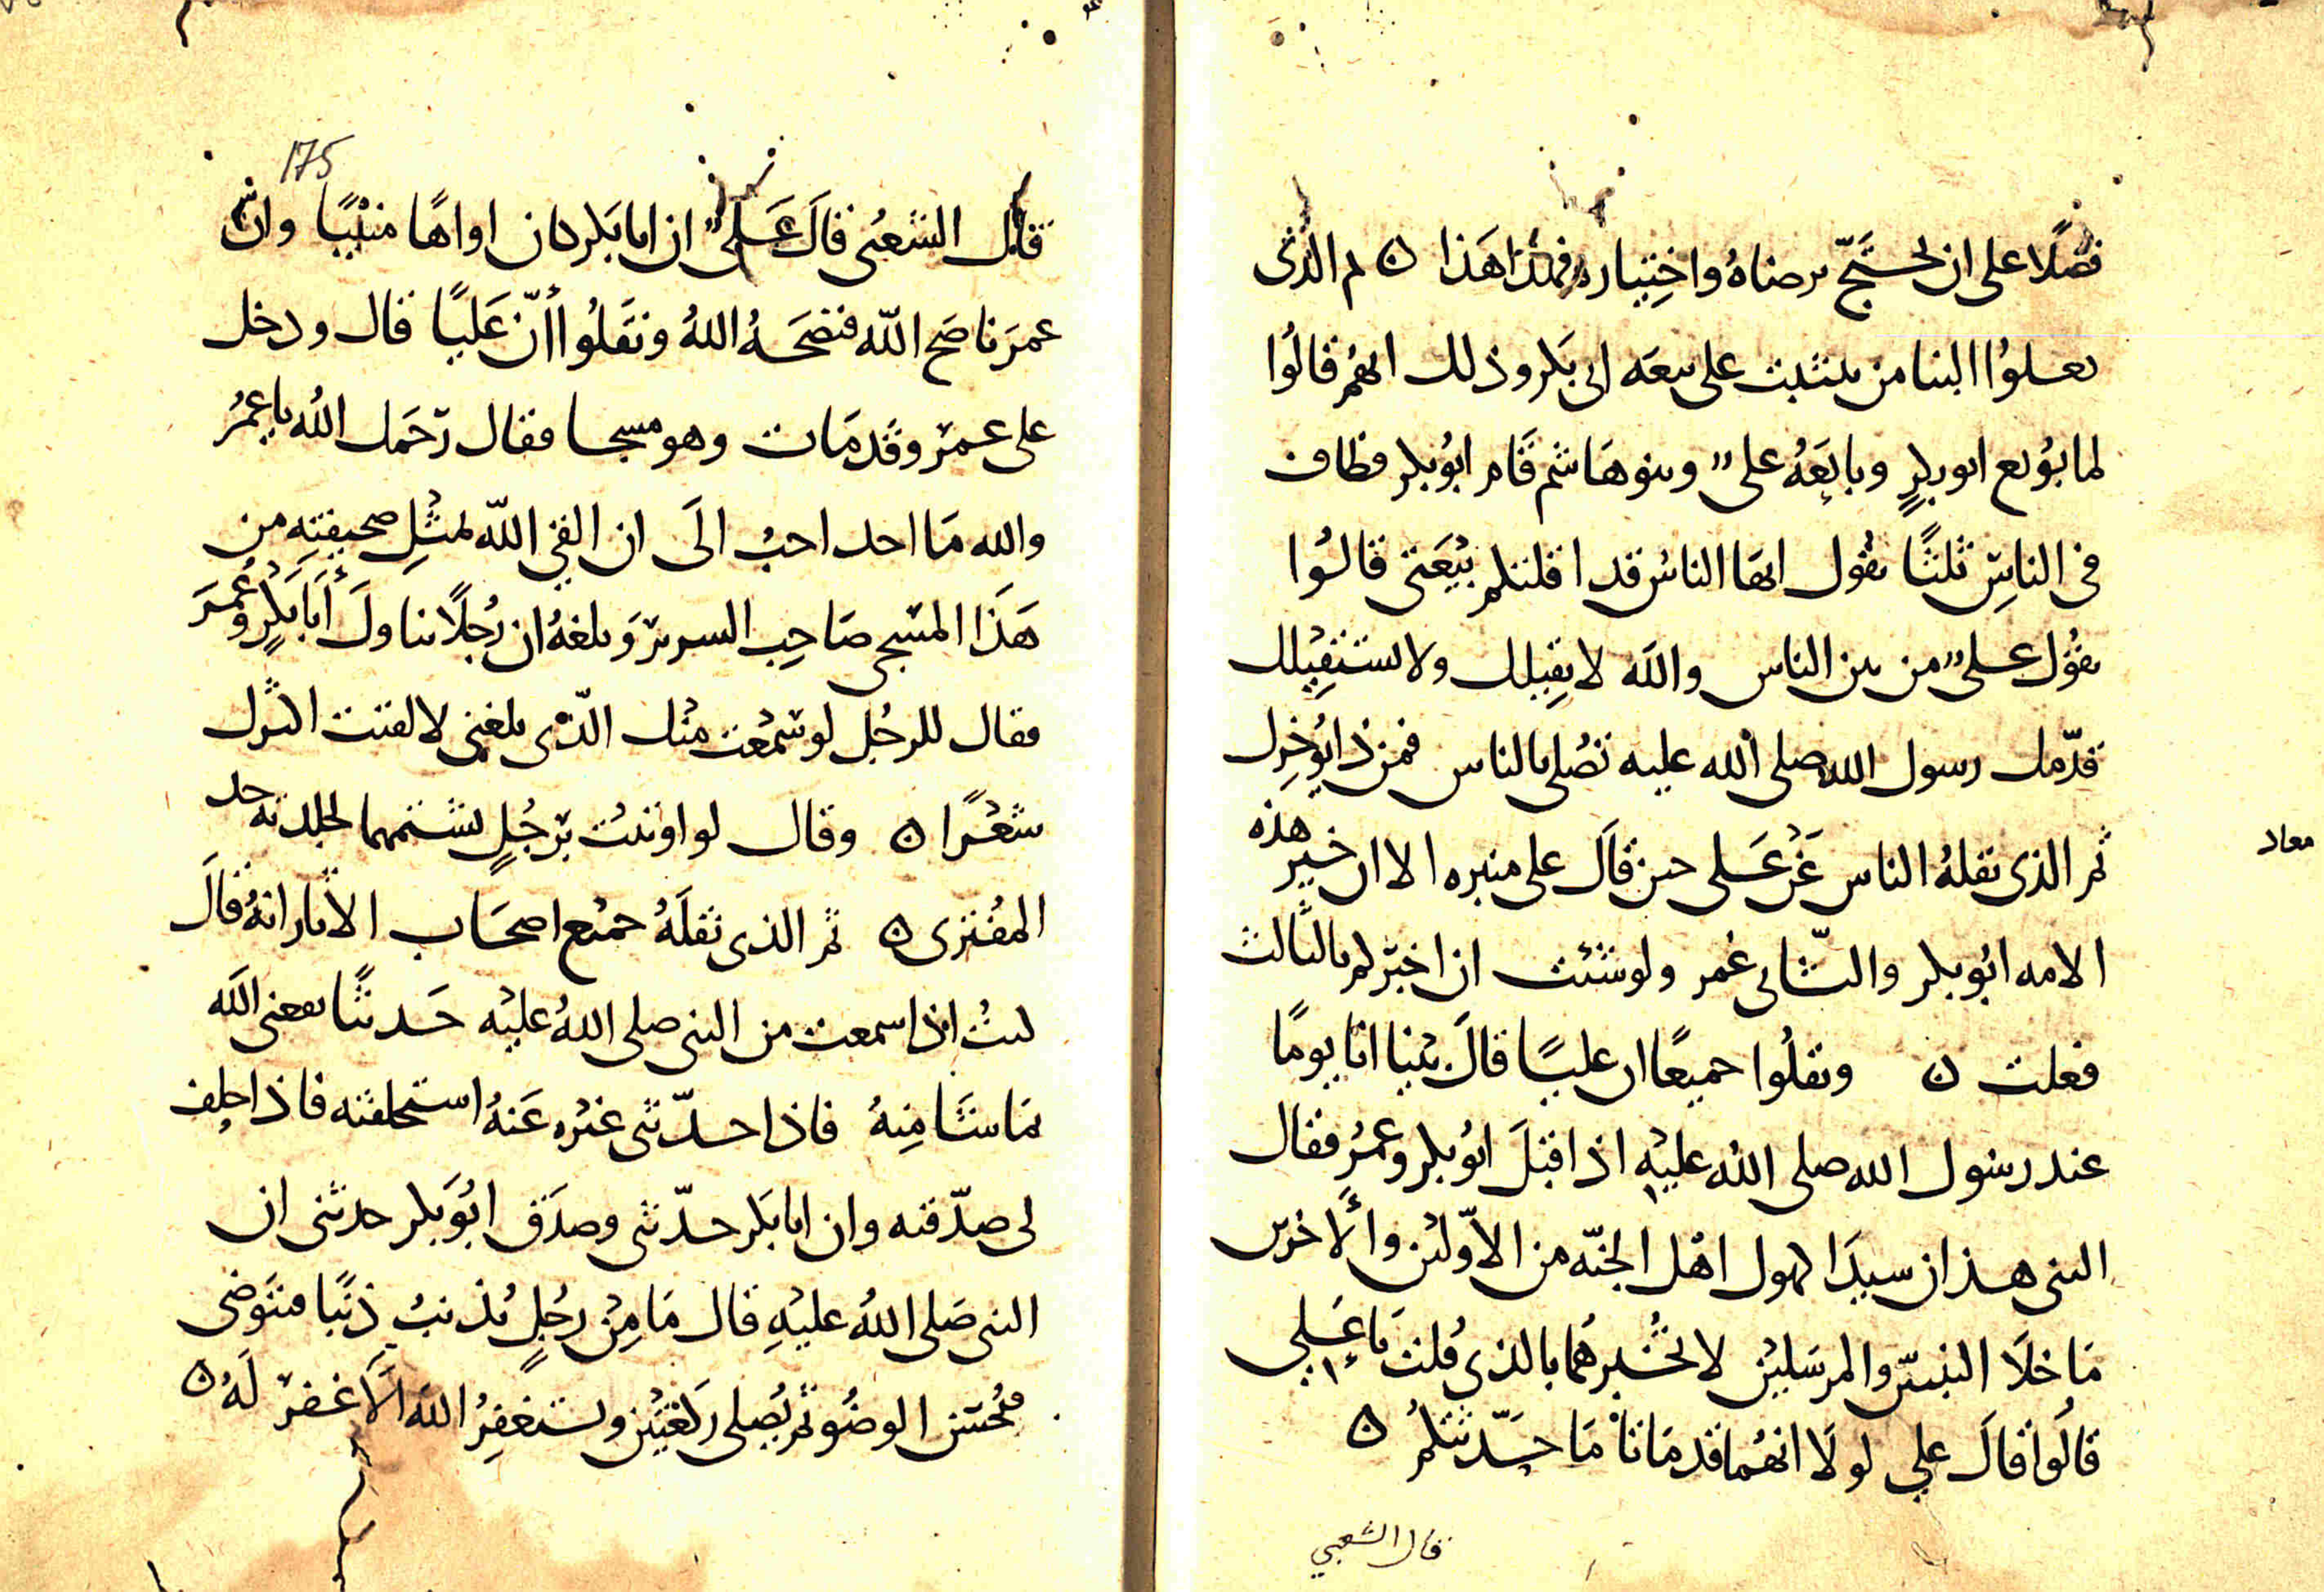 فضلا على ان نحتج برضاه واختياره فهذا هذا ن ثم الذى
نقلوا الينا من تثبت على بيعه ابى بكر وذلك انهم قالوا
لما بويع ابو بكر وبايعه على وبنو هاشم قام ابو بكر فطاف
فى الناس ثلثا يقول ايها الناس قد اقلتكم بيعتى قالوا
يقول على من بين الناس والله لا نقيلك ولا نستقيلك
قدمك رسول الله صلى الله عليه تصلى بالناس فمن ذا يؤخرك
ثم الذى نقله الناس عن على حين قال على منبره الا ان خير هذه
معاد
الامه ابو بكر والثانى عمر ولو شئت ان اخبركم بالثالث
فعلت ن ونقلوا جميعا ان عليا قال بينا انا يوما
عند رسول الله صلى الله عليه اذ اقبل ابو بكر وعمر فقال
النبى هذان سيدا كهول اهل الجنه من الاولين والاخرين
ما خلا النبيين والمرسلين لا تخبرهما بالذى قلت يا على
قالوا قال على لولا انهما قد ماتا ما حدثتكم ن
قال الشعبي
175
قال الشعبى قال على ان ابا بكر كان اواها منيبا وان
عمر ناصح الله فنصحه الله ونقلوا أن عليا قال ودخل
على عمر وقد مات وهو مسجا فقال رحمك الله يا عمر
والله ما احد احب الى ان القى الله بمثل صحيفته من
هذا المسجى صاحب السرير وبلغه ان رجلا تناول أبا بكر وعمر
فقال للرجل لو سمعت منك الذى بلغنى لالقيت اكثرك
شعرا ن وقال لو اوتيت برجل يشتمهما لجلدته حد
المفترى ن ثم الذى نقله جميع اصحاب الاثار انه قال
كنت اذا سمعت من النبى صلى الله عليه حديثا نفعنى الله
بما شا منه فاذا حدثنى غيره عنه استحلفته فاذا حلف
لى صدقته وان ابا بكر حدثنى وصدق ابو بكر حدثنى ان
النبى صلى الله عليه قال ما من رجل يذنب ذنبا فيتوضى
فيحسن الوضو ثم يصلى ركعتين ويستغفر الله الا غفر له ن